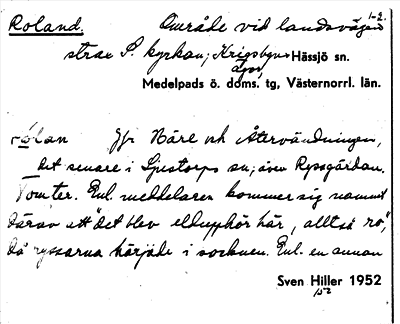 Roland. Område vid landsvägen 1-2.
strax S. kyrkan; Krigsbyns Hässjö sn.
ägor
Medelpads ö. doms. tg, Västernorrl. län.
rolan Jfr Näre och Återvändningen,
det senare i Ljustorps sn; även Ryssgårdan.
Tomter. Enl. meddelaren kommer sig namnet
därav att "det blev eldupphör här, alltså ro",
då ryssarna härjade i socknen. Enl. en annan
Sven Hiller 1952